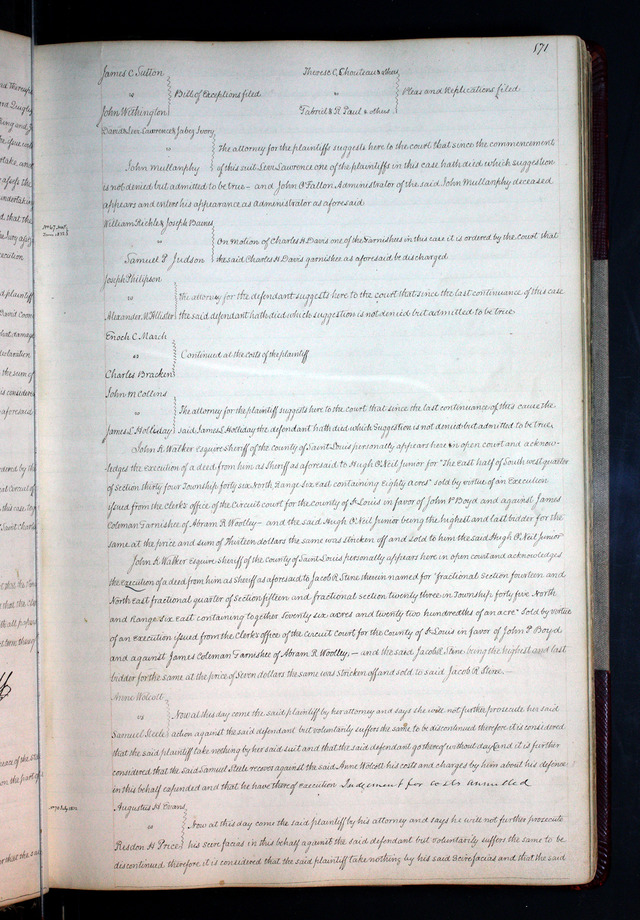 571
James C Sutton
vs
John Wethington
Bill of Exceptions filed
Therese C. Chouteau & others
vs
Gabriel R. Paul & others
Pleas and Replications filed
David & Levi Lawrence & Jabez Ivory
vs
John Mullanphy
The attorney for the plaintiffs suggests here to the court that since the commencement
of this suit Levi Lawrence one of the plaintiffs in this case hath died which suggestion
is not denied but admitted to be true – and John O'Fallon Administrator of the said John Mullanphy deceased
appears and enters his appearance as administrator as aforesaid
William Rickle & Joseph Baines
vs
Samuel P Judson
On motion of Charles H Davis one of the Garnishees in this case it is ordered by the court that
the said Charles H Davis garnishee as aforesaid be discharged
Joseph Philipson
vs
Alexander McAllister
The attorney for the defendant suggests here to the court that since the last continuance of this case
the said defendant hath died which suggestion is not denied but admitted to be true
Enoch C. March
vs
Charles Bracken
Continued at the costs of the plaintiff
John M Collins
vs
James L Holliday
The attorney for the plaintiff suggests here to the court that since the last continuance of this cause the
said James L Holliday the defendant hath died which Suggestion is not denied but admitted to be true,
John K Walker Esquire Sheriff of the county of Saint Louis personally appears here in open court and acknow-
ledges the execution of a deed from him as Sheriff as aforesaid to Hugh O'Neil Junior for "The east half of South west quarter
of Section thirty four Township forty six North, Range Six east containing eighty acres" sold by virtue of an Execution
issued from the Clerks office of the Circuit court for the County of St Louis in favor of John P Boyd and against James
Coleman Garnishee of Abram R Woolley – and the said Hugh O'Neil Junior being the highest and last bidder for the
same at the price and sum of Thirteen dollars the same was stricken off and sold to him the said Hugh O'Neil Junior
John K Walker Esquire Sheriff of the County of Saint Louis personally appears here in open court and acknowledges
the execution of a deed from him as sheriff as aforesaid to Jacob R. Stine therein named for "fractional section fourteen and
North east fractional quarter of Section fifteen and fractional section twenty three in Township forty five North
and Range Six east containing together Seventy six acres and twenty two hundredths of an acre" Sold by virtue
of an execution issued from the Clerks office of the Circuit court for the County of St Louis in favor of John P Boyd
and against James Coleman Garnishee of Abram R Woolley, – and the said Jacob R. Stine being the highest and last
bidder for the same at the price of Seven dollars the same was Stricken off and sold to said Jacob R Stine. –
Anne Wolcott
vs
Samuel Steele
Now at this day come the said plaintiff by her attorney and says she will not further prosecute her said
action against the said defendant but voluntarily suffers the same to be discontinued therefore it is considered
that the said plaintiff take nothing by her said suit and that the said defendant go thereof without day & and it is further
considered that the said Samuel Steele recover against the said Anne Wolcott his costs and charges by him about his defence
in this behalf expended and that he have thereof execution Judgement for costs annulled
Augustus H Evans
vs
Risdon H Price
Now at this day come the said plaintiff by his attorney and says he will not further prosecute
his scire facias in this behalf against the said defendant but voluntarily suffers the same to be
discontinued therefore it is considered that the said plaintiff take nothing by his said Scire facias and that the said